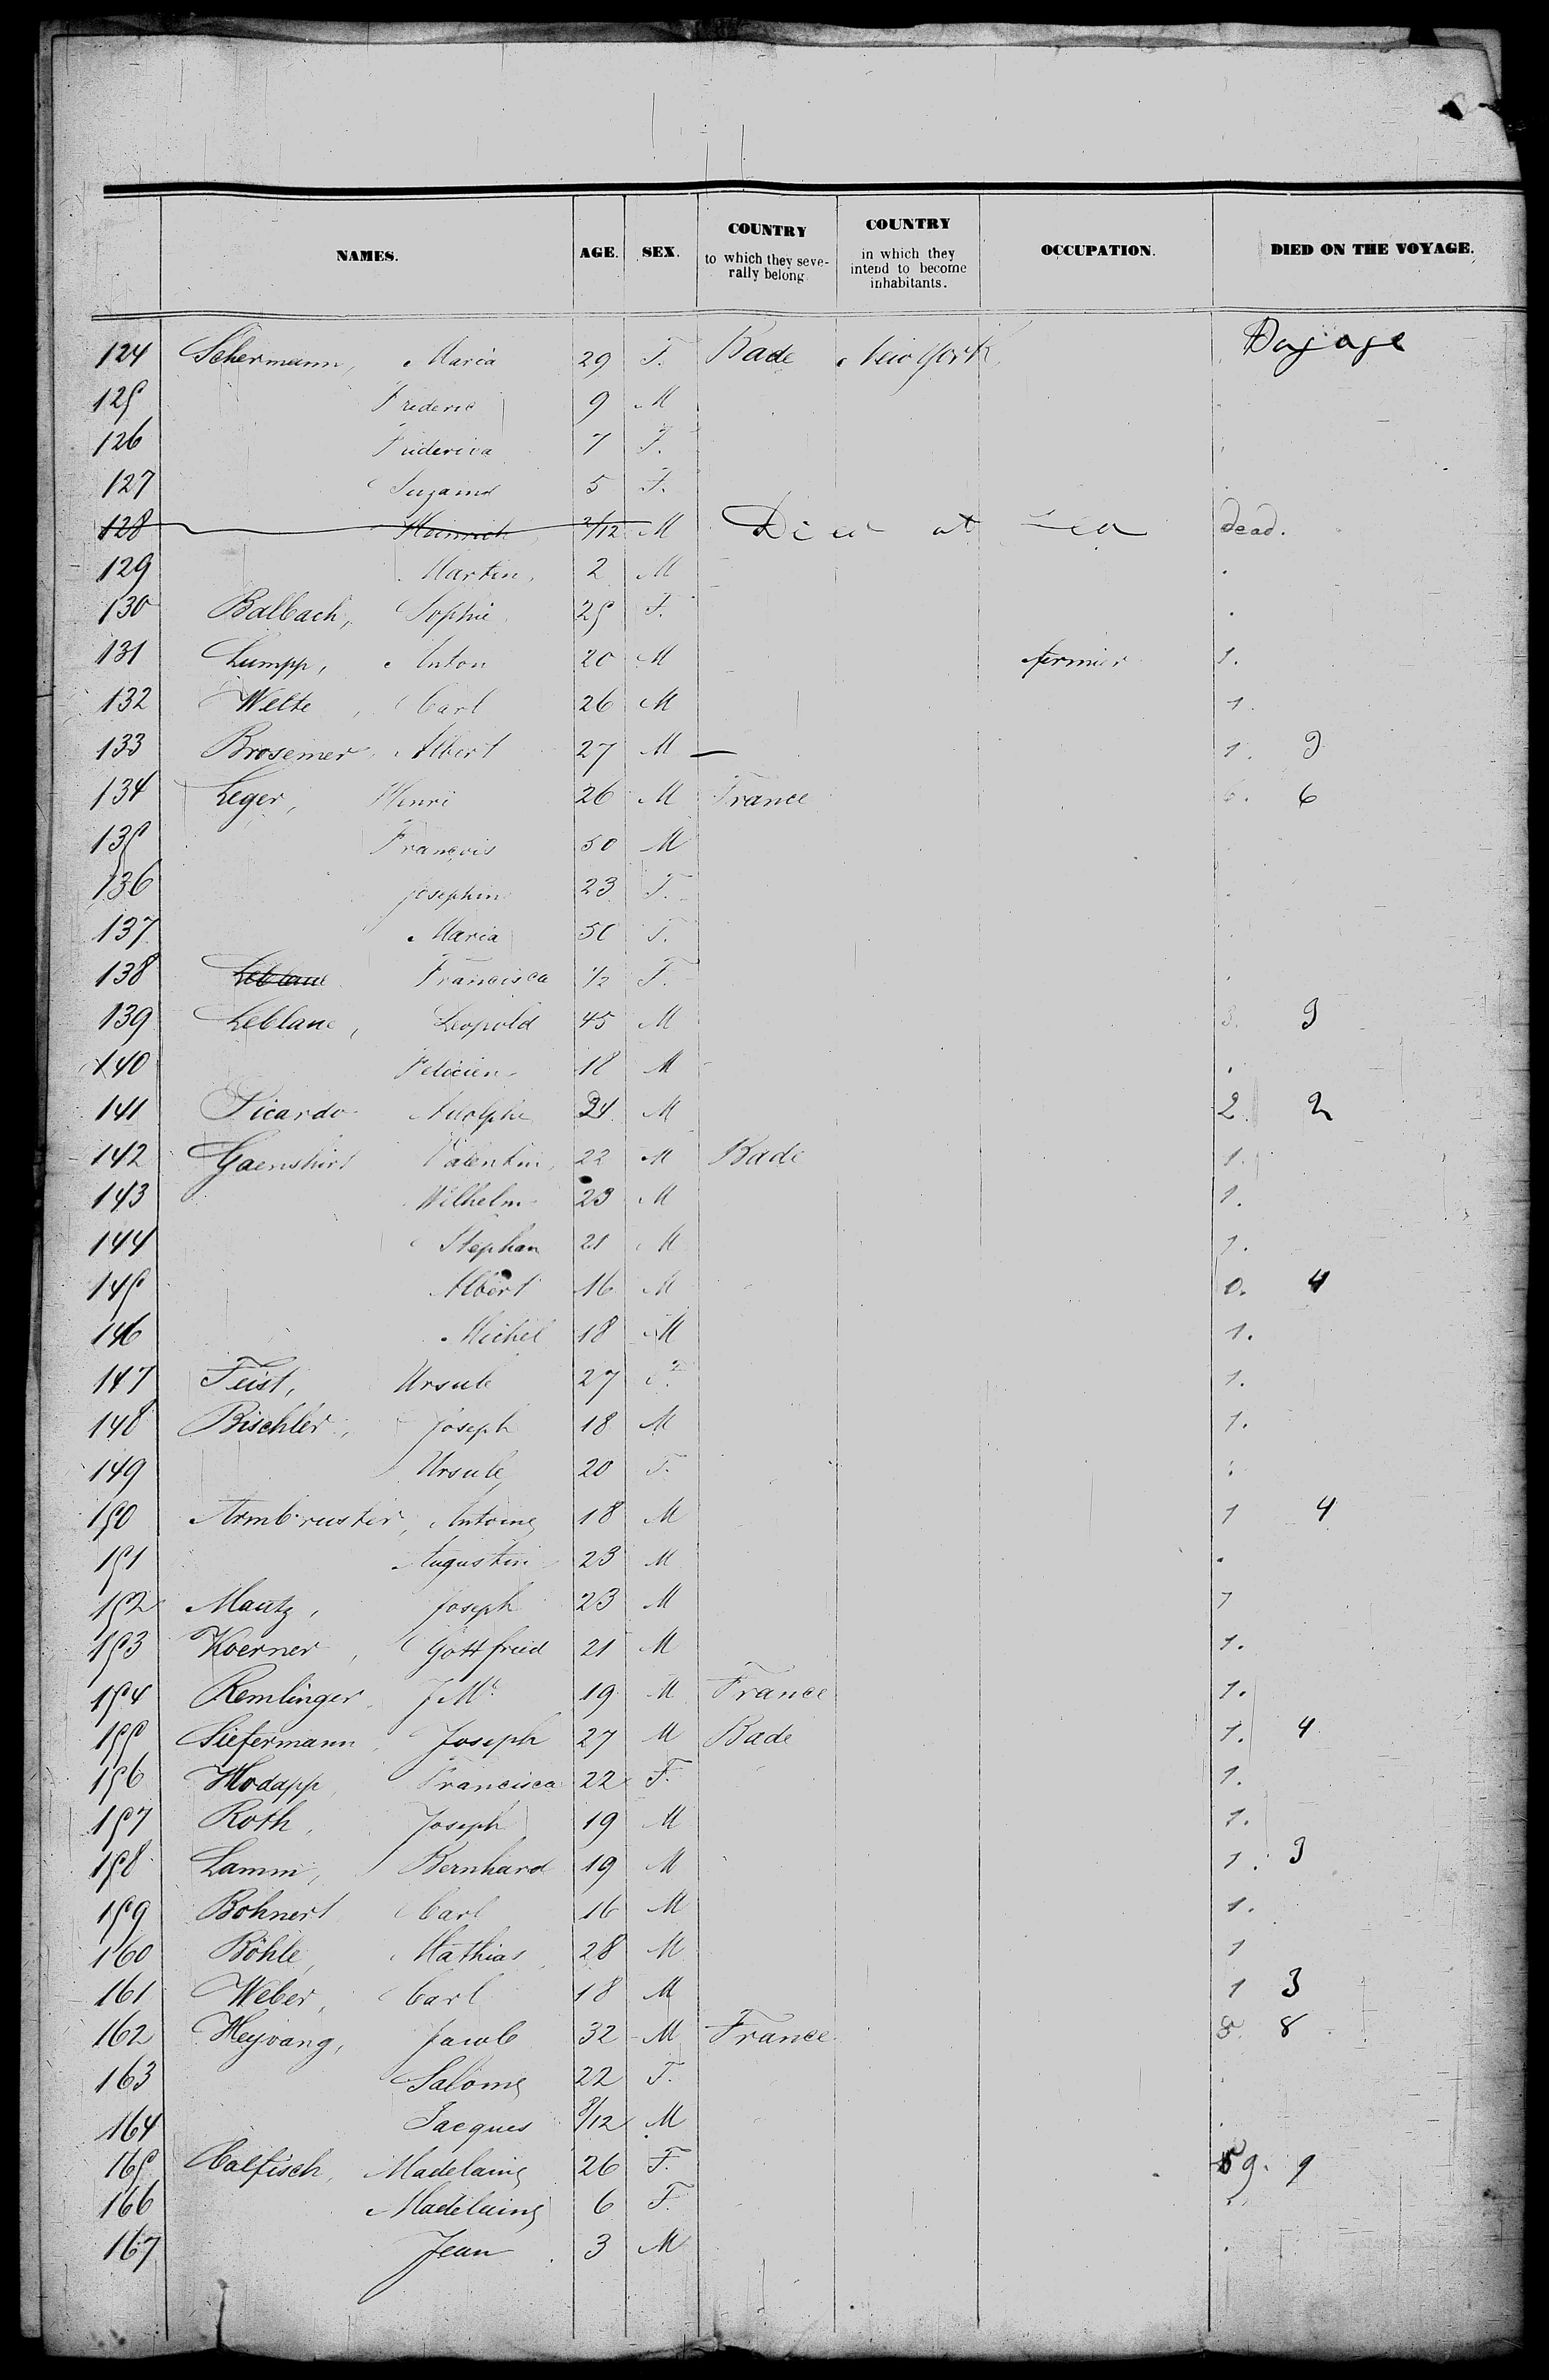 NAMES. AGE. SEX. COUNTRY to which they severally belong. COUNTRY in which they intend to become inhabitants. OCCUPATION. DIED ON THE VOYAGE.
Bagage
124 Schermann, Maria 29 F. Bade New York
125 Frederic 9 M
126 Friderica 7 F.
127 Suzanne 5 F.
128 Heinrich /12 M Died at Sea dead.
129 Martin, 2 M
130 Balbach, Sophie 25 F.
131 Lumpp, Anton 20 M fermier 1.
132 Welte, Carl 26 M 1.
133 Brosemer Albert 27 M — 1. 3
134 Leger, Henri 26 M France 6. 6
135 François 50 M
136 Josephin 23 F.
137 Maria 50 F.
138 Leblanc Francisca 1/2 F.
139 Leblanc, Leopold 45 M 3. 3
140 Felicien 18 M
141 Picardo Adolphe 24 M 2. 2
142 Gaenshirt Valentin, 22 M Bade 1.
143 Wilhelm 23 M 1.
144 Stephan 21 M 1.
145 Albert 16 M 0. 4
146 Michel 18 M 1.
147 Feist, Ursule 27 F. 1.
148 Bischler, Joseph 18 M 1.
149 Ursule 20 F.
150 Armbruster, Antoine 18 M 1 4
151 Augustin 23 M
152 Mautz, Joseph 23 M 1
153 Koerner, Gottfried 21 M 1.
154 Remlinger J. M. 19 M France 1.
155 Siefermann Joseph 27 M Bade 1. 4
156 Hodapp, Francisca 22 F. 1.
157 Roth, Joseph 19 M 1.
158 Lamm, Bernhard 19 M 1. 3
159 Bohnert Carl 16 M 1.
160 Böhle, Mathias 28 M 1
161 Weber, Carl 18 M 1 3
162 Heyvang, Jacob 32 M France 8. 8
163 Salome 22 F.
164 Jacques /12 M
165 Calfisch, Madelaine 26 F. 9. 9
166 Madelaine 6 F.
167 Jean 3 M